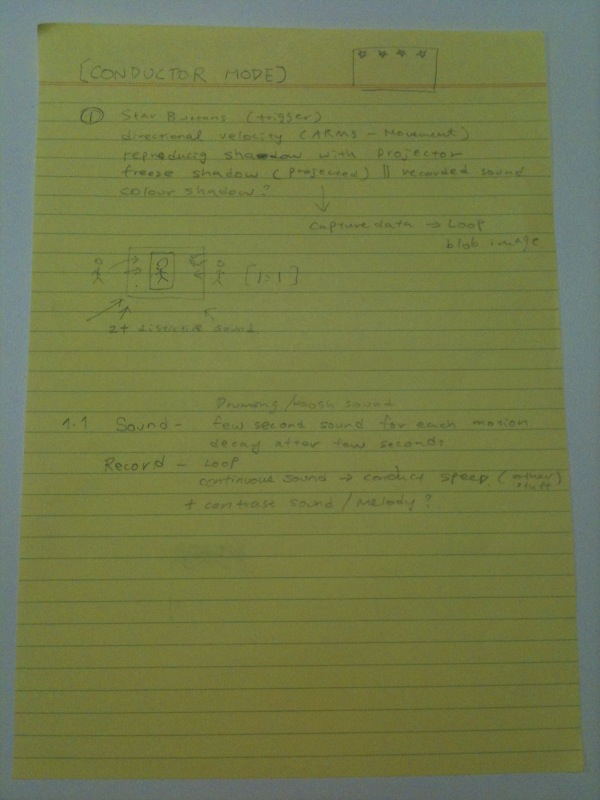 [CONDUCTOR MODE]
① Star Buttons (trigger)
directional velocity (ARMS - Movement)
reproducig shadow with projector
freeze shadow (projected) || recorded sound
colour shadow?
capture data → Loop
blob image
[1S1]
2+ distictive sound.
Drumming / woosh sound
1.1 Sound - few second sound for each motion
decay after few seconds
Record - Loop
continuous sound → conduct speed. (other stuff)
+ contrase sound / Melody?